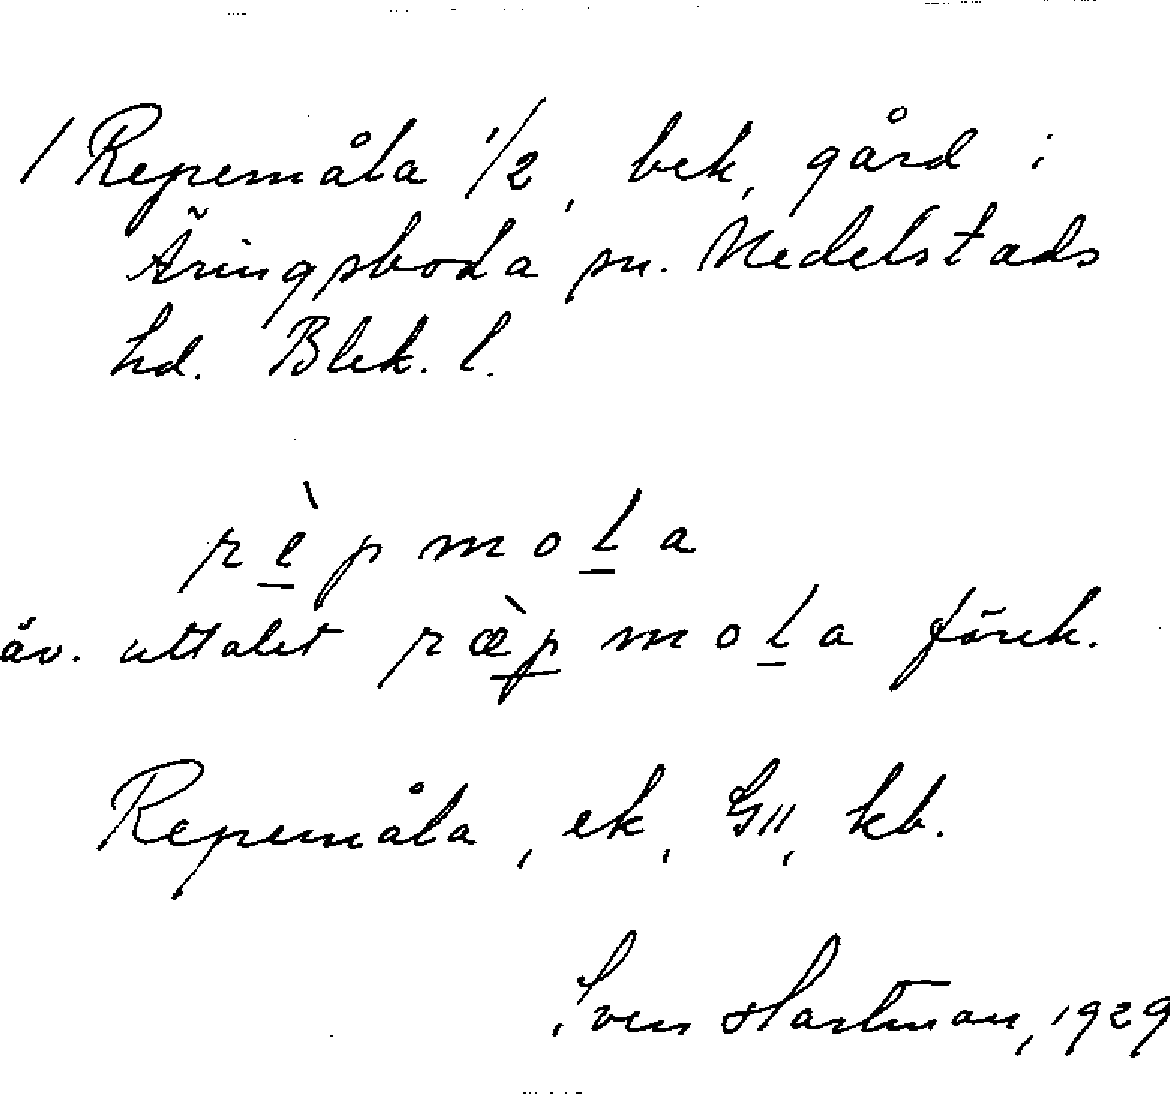 / Repemåla 1/2, bek, gård i
Äringsboda sn. Medelstads
hd. Blek. l.
rèpmola
äv. uttalet ræ̀pmola förek.
Repemåla, ek, GII, kb.
Sven Hartman, 1929